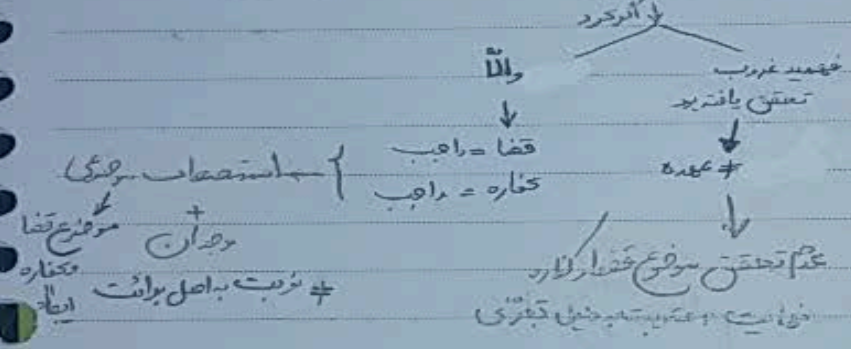 اگر کرد
فهمید غروب
تحقق یافته بود
↓
≠ عهده
↓
عدم تحقق موضوع قضا و کفاره
تجرّی
والّا
↓
قضا = واجب
کفاره = واجب
استصحاب موضوعی
+
وجدان
موضوع قضا
وکفاره
≠ نوبت به اصل برائت